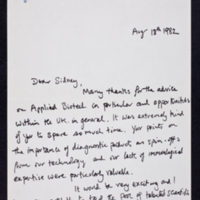 Aug 18th 1982
Dear Sidney,
Many thanks for the advice
on Applied Biotech in particular and opportunities
within the UK in general. It was extremely kind
of you to spare so much time. Your points on
the importance of diagnostic products as spin-offs
from our technology and our lack of immunological
expertise were particularly valuable.
It would be very exciting and I
to lead the sort of talented scientists